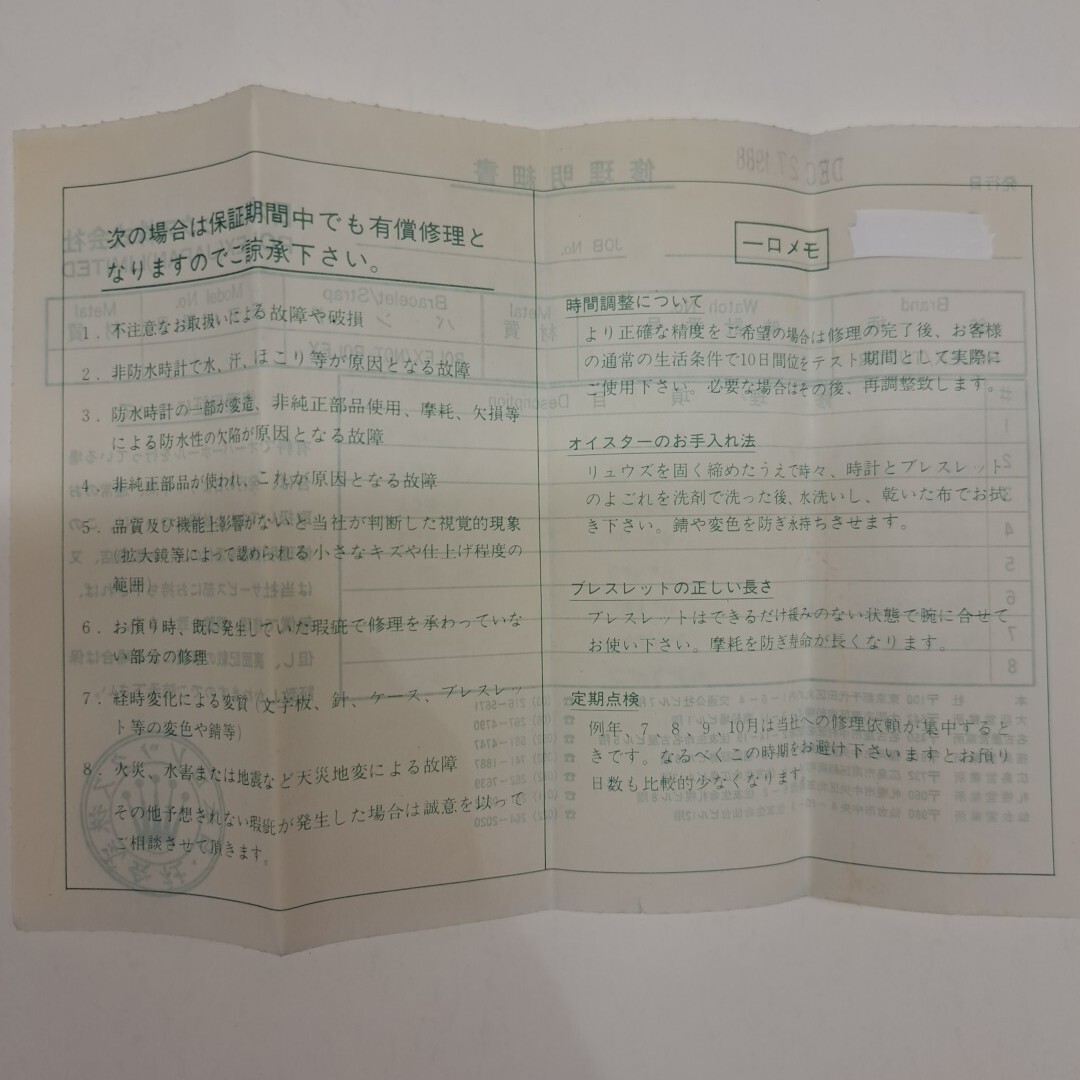 次の場合は保証期間中でも有償修理と
なりますのでご諒承下さい。
1．不注意なお取扱いによる故障や破損
2．非防水時計で水、汗、ほこり等が原因となる故障
3．防水時計の一部が変造、非純正部品使用、摩耗、欠損等
による防水性の欠陥が原因となる故障
4．非純正部品が使われ、これが原因となる故障
5．品質及び機能上影響がないと当社が判断した視覚的現象
（拡大鏡等によって認められる小さなキズや仕上げ程度の
範囲）
6．お預り時、既に発生していた瑕疵で修理を承わっていな
い部分の修理
7．経時変化による変質（文字板、針、ケース、ブレスレッ
ト等の変色や錆等）
8．火災、水害または地震など天災地変による故障
その他予想されない瑕疵が発生した場合は誠意を以って
ご相談させて頂きます。
一口メモ
時間調整について
より正確な精度をご希望の場合は修理の完了後、お客様
の通常の生活条件で10日間位をテスト期間として実際に
ご使用下さい。必要な場合はその後、再調整致します。
オイスターのお手入れ法
リュウズを固く締めたうえで時々、時計とブレスレット
のよごれを洗剤で洗った後、水洗いし、乾いた布でお拭
き下さい。錆や変色を防ぎ永持ちさせます。
ブレスレットの正しい長さ
ブレスレットはできるだけ緩みのない状態で腕に合せて
お使い下さい。摩耗を防ぎ寿命が長くなります。
定期点検
例年、7、8、9、10月は当社への修理依頼が集中すると
きです。なるべくこの時期をお避け下さいますとお預り
日数も比較的少なくなります。
修理明細書
DEC 27 1988
発行日
JOB No.